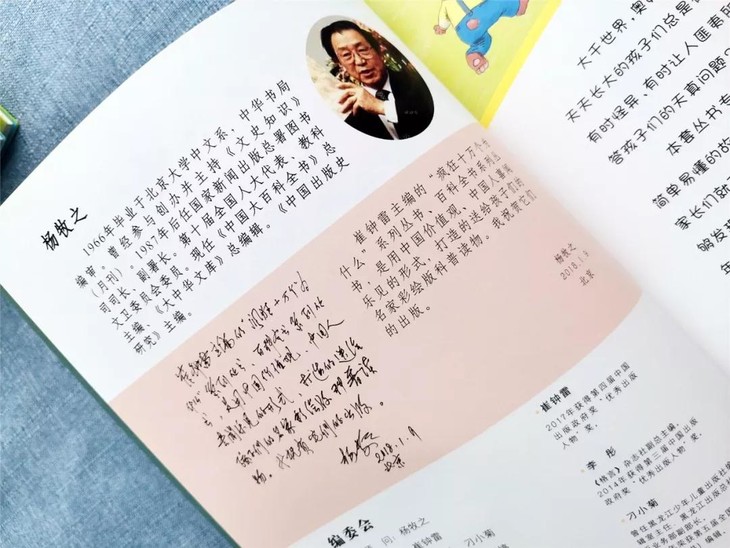 杨牧之
1966年毕业于北京大学中文系,中华书局
编审。曾经参与创办并主持《文史知识》
(月刊)。1987年后任国家新闻出版总署图书
司司长、副署长。第十届全国人大代表、教科
文卫委员会委员。现任《中国大百科全书》总
主编、《大中华文库》总编辑。《中国出版史
研究》主编。
崔钟雷主编的“疯狂十万个为
什么”系列丛书、百科全书系列丛
书,是用中国价值观、中国人喜闻
乐见的形式,打造的送给孩子们的
名家彩绘版科普读物。我祝贺它们
的出版。
杨牧之
2018.1.9
北京
崔钟雷主编的“疯狂十万个为
什么”系列丛书、百科全书系列丛
书,是用中国价值观、中国人
喜闻乐见的形式,打造的送给
孩子们的名家彩绘版科普读
物。我祝贺它们的出版。
杨牧之
2018.1.9
北京
编委会
问:杨牧之
崔钟雷
刁小菊
大千世界,奥
天天长大的孩子们总是
有时怪异,有时让人匪夷所
答孩子们的天真问题?
本套丛书专
简单易懂的故
家长们就
够发现
崔钟雷
2017年获得第四届中国
出版政府奖“优秀出版
人物”奖。
李 彤
《格言》杂志社副总主编,
2014年获得第三届中国出版
政府奖“优秀出版人物”奖。
刁小菊
曾任黑龙江少年儿童出版社
辑室主任、黑龙江出版总社
业务部副部长。
荣获第五届全国
编辑。